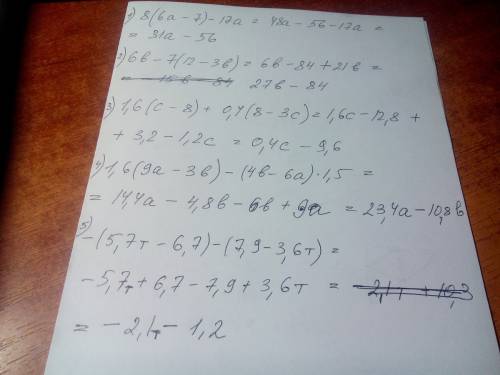 1) 8(6а-7)-17а = 48а-56-17а =
= 31а-56
2) 6в-7(12-3в) = 6в-84+21в =
27в-84
3) 1,6(с-8)+0,4(8-3с) = 1,6с-12,8+
+3,2-1,2с = 0,4с-9,6
4) 1,6(9а-3в)-(4в-6а)·1,5 =
= 14,4а-4,8в-6в+9а = 23,4а-10,8в
5)
-(5,7т-6,7)-(7,9-3,6т) =
-5,7т+6,7-7,9+3,6т =
= -2,1т-1,2